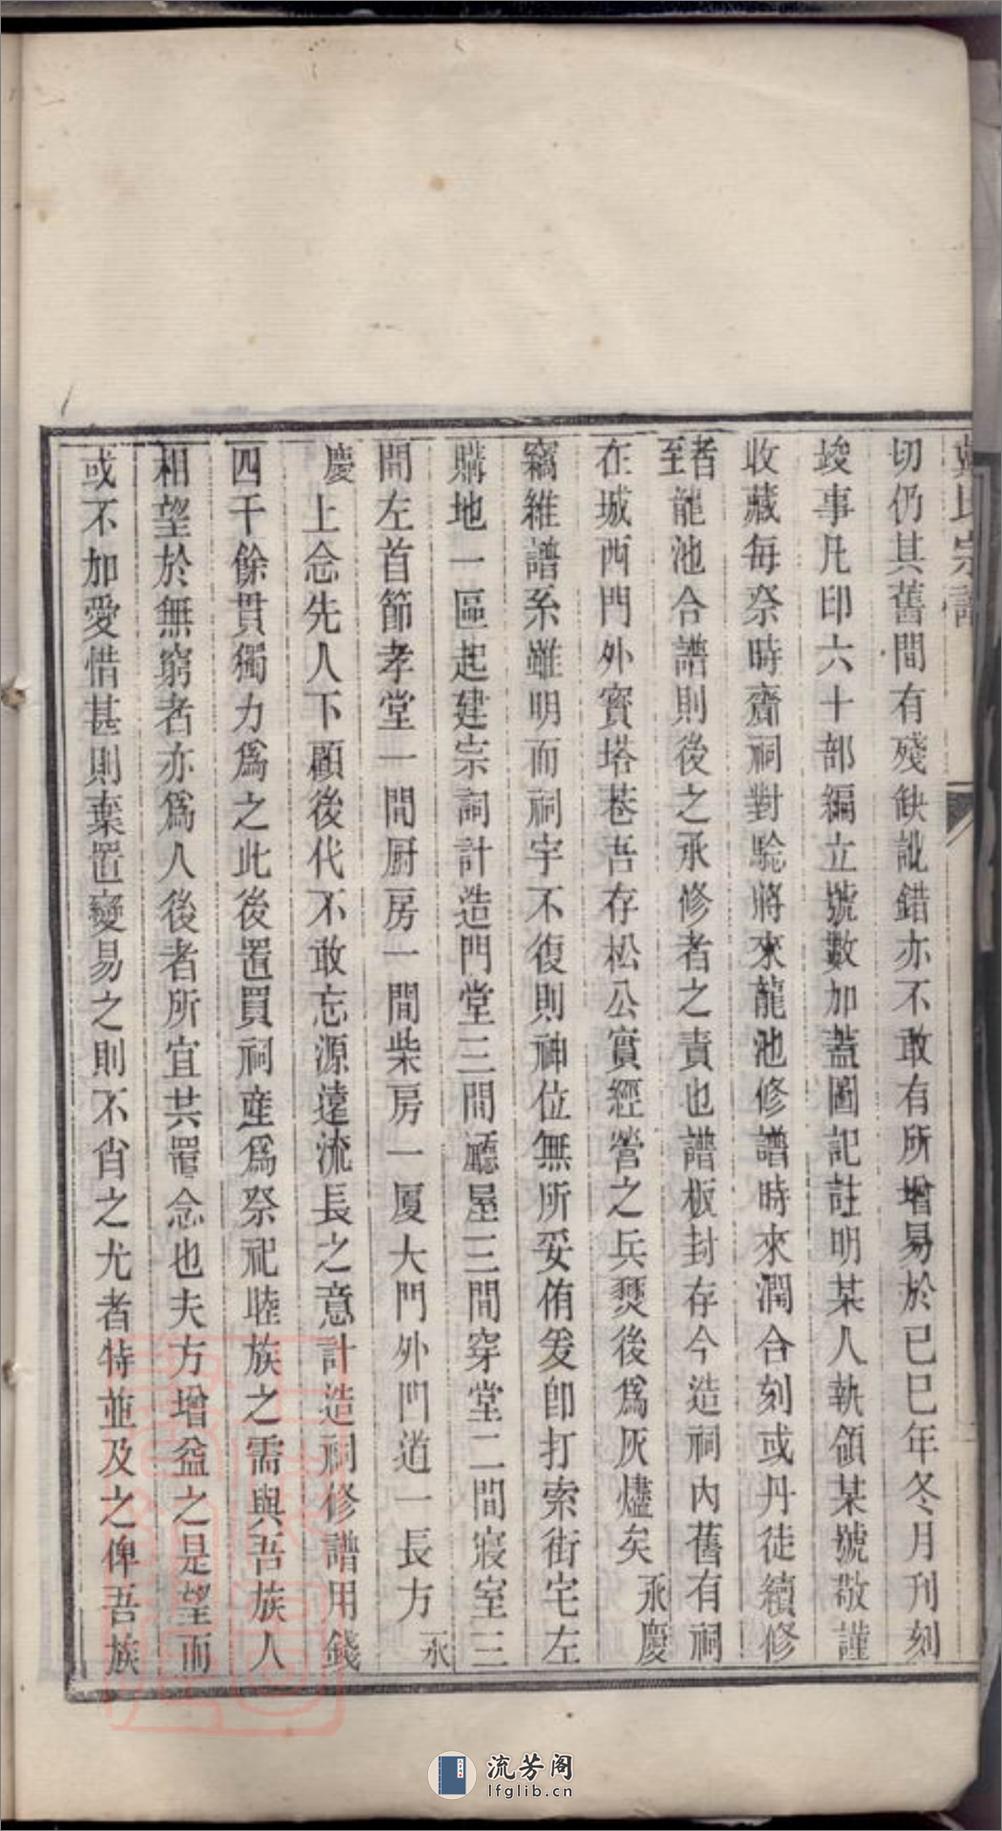 戴氏宗譜
切仍其舊間有殘缺訛錯亦不敢有所增易於己巳年冬月刊刻
竣事凡印六十部編立號數加蓋圖記註明某人執領某號敬謹
收藏每祭時齎祠對驗將來龍池修譜時來潤合刻或丹徒續修
者至龍池合譜則後之承修者之責也譜板封存今造祠內舊有祠
在城西門外寶塔巷吾存松公實經營之兵燹後為灰燼矣承慶
竊維譜系雖明而祠宇不復則神位無所妥侑爰即打索街宅左
購地一區起建宗祠計造門堂三間廳屋三間穿堂二間寢室三
間左首節孝堂一間厨房一間柴房一厦大門外凹道一長方承
慶上念先人下顧後代不敢忘源遠流長之意計造祠修譜用錢
四千餘貫獨力爲之此後置買祠產爲祭祀睦族之需與吾族人
相望於無窮者亦爲人後者所宜共置念也夫方增益之是望而
或不加愛惜甚則棄置變易之則不肖之尤者特並及之俾吾族
流芳阁
lfglib.cn